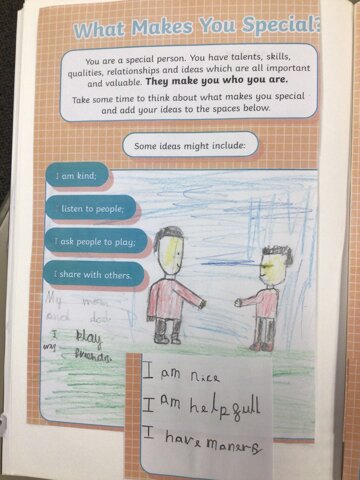 What Makes You Special?
You are a special person. You have talents, skills,
qualities, relationships and ideas which are all important
and valuable. They make you who you are.
Take some time to think about what makes you special
and add your ideas to the spaces below.
Some ideas might include:
I am kind;
I listen to people;
I ask people to play;
I share with others.
My mom
and dad
I play
friends.
I am nice
I am helpfull
I have maners